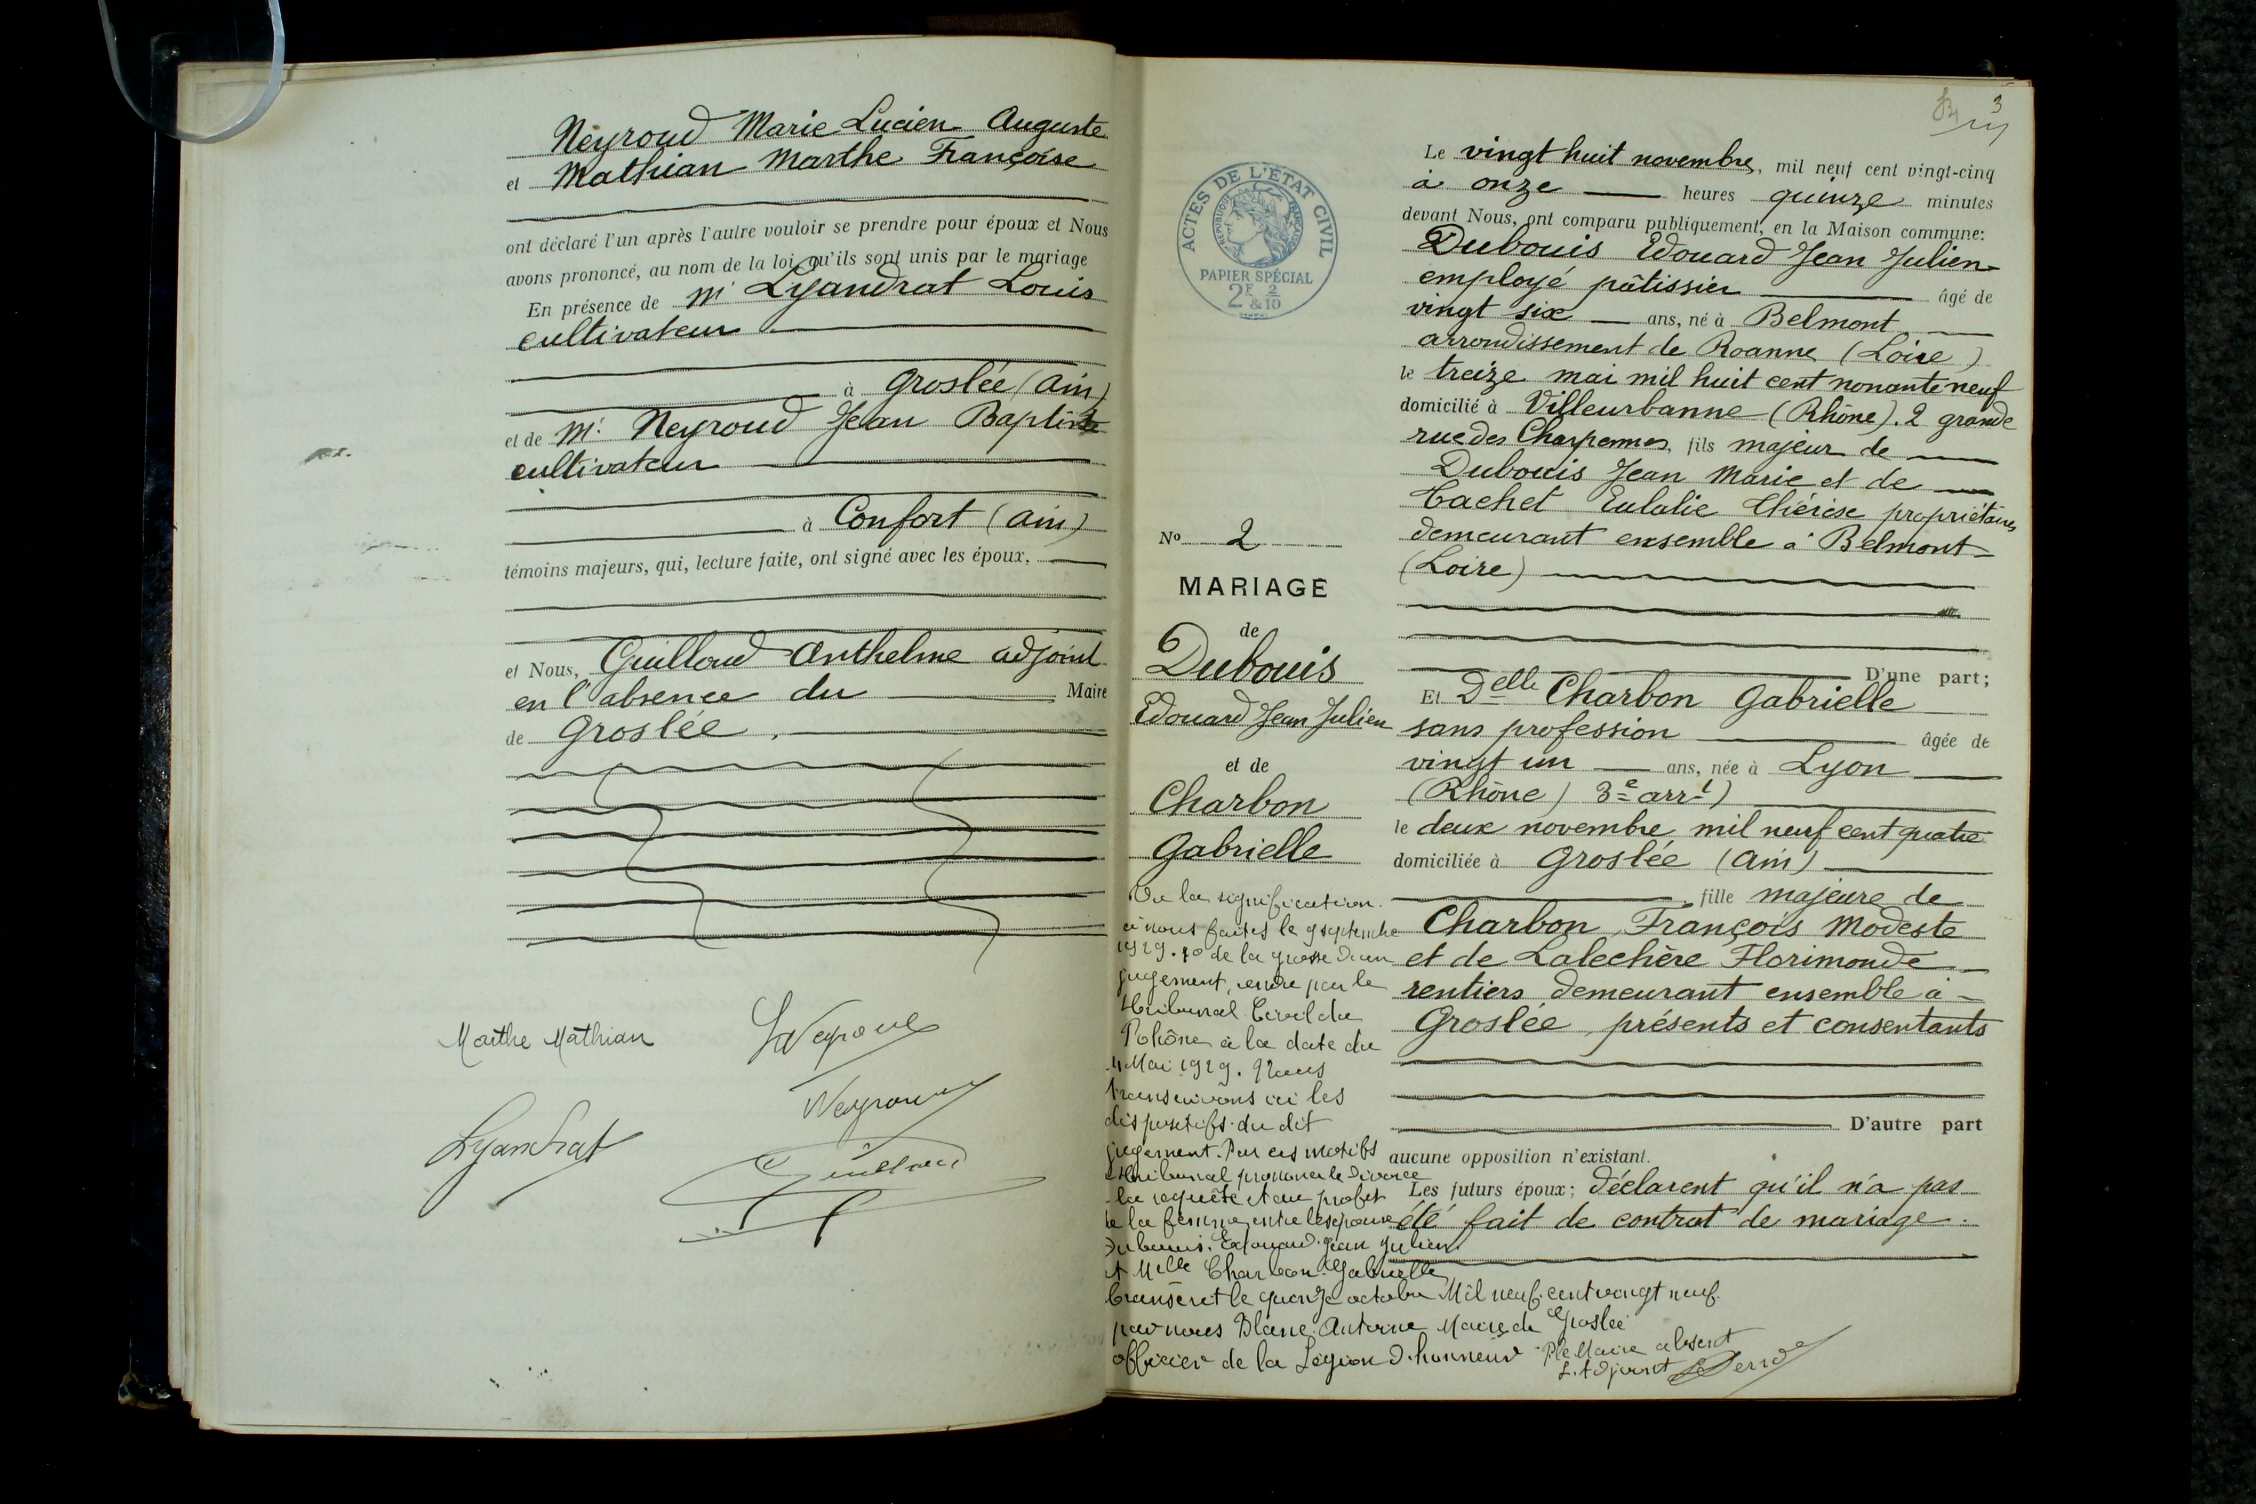 Neyroud Marie Lucien Auguste
et Mathian Marthe Françoise
ont déclaré l'un après l'autre vouloir se prendre pour époux et Nous
avons prononcé, au nom de la loi, qu'ils sont unis par le mariage
En présence de Mr Lyandrat Louis
cultivateur
à Groslée (Ain)
et de Mr. Neyroud Jean Baptiste
cultivateur
à Confort (Ain)
témoins majeurs, qui, lecture faite, ont signé avec les époux,
et Nous, Guilloud Anthelme adjoint
en l'absence du Maire
de Groslée.
Marthe Mathian
Lyandrat
Guilloud
3
ACTES DE L'ÉTAT CIVIL
RÉPUBLIQUE FRANÇAISE
PAPIER SPÉCIAL
2F & 2/10
No 2
MARIAGE
de
Dubouis
Edouard Jean Julien
et de
Charbon
Gabrielle
Vu la signification
à nous faites le 9 septembre
1929. de la grosse d'un
jugement, rendu par le
tribunal Civil du
Rhône à la date du
4 Mai 1929. Nous
transcrivons ici les
dispositifs du dit
jugement. Par ces motifs
tribunal prononce le divorce
la requête et au profit
de la femme entre les époux
Dubouis. Edouard. Jean Julien
et Melle Charbon Gabrielle
Transcrit le quinze octobre Mil neuf cent vingt neuf
par nous Blanc Antoine Maire de Groslée
officier de la Légion d'honneur P le Maire absent
L. Adjoint
Le vingt huit novembre, mil neuf cent vingt-cinq
à onze heures quinze minutes
devant Nous, ont comparu publiquement, en la Maison commune:
Dubouis Edouard Jean Julien
employé pâtissier âgé de
vingt six ans, né à Belmont
arrondissement de Roanne (Loire)
le treize mai mil huit cent nonante neuf
domicilié à Villeurbanne (Rhône). 2 grande
rue des Charpennes, fils majeur de
Dubouis Jean Marie et de
Cachet Eulalie Thérèse propriétaires
demeurant ensemble à Belmont
(Loire)
D'une part;
Et Delle Charbon Gabrielle
sans profession âgée de
vingt un ans, née à Lyon
(Rhône) 3e arrt)
le deux novembre mil neuf cent quatre
domiciliée à Groslée (Ain)
fille majeure de
Charbon François Modeste
et de Lalechère Florimonde
rentiers demeurant ensemble à
Groslée, présents et consentants
D'autre part
aucune opposition n'existant.
Les futurs époux; déclarent qu'il n'a pas
été fait de contrat de mariage.